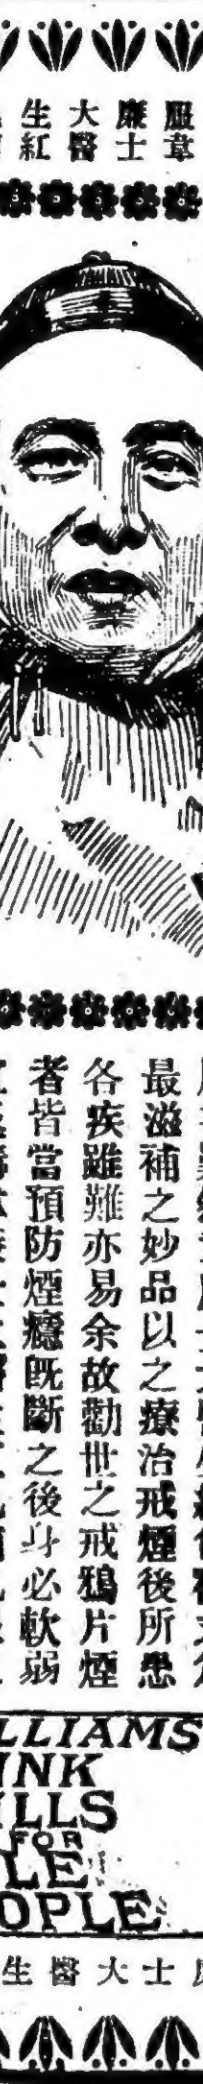 服韋
廉士
大醫
生紅
最滋補之妙品以之療治戒煙後所患
各疾雖難亦易余故勸世之戒鴉片煙
者皆當預防煙癮既斷之後身必軟弱
LLIAMS
INK
LLS
FOR
LE
OPLE
士大醫生